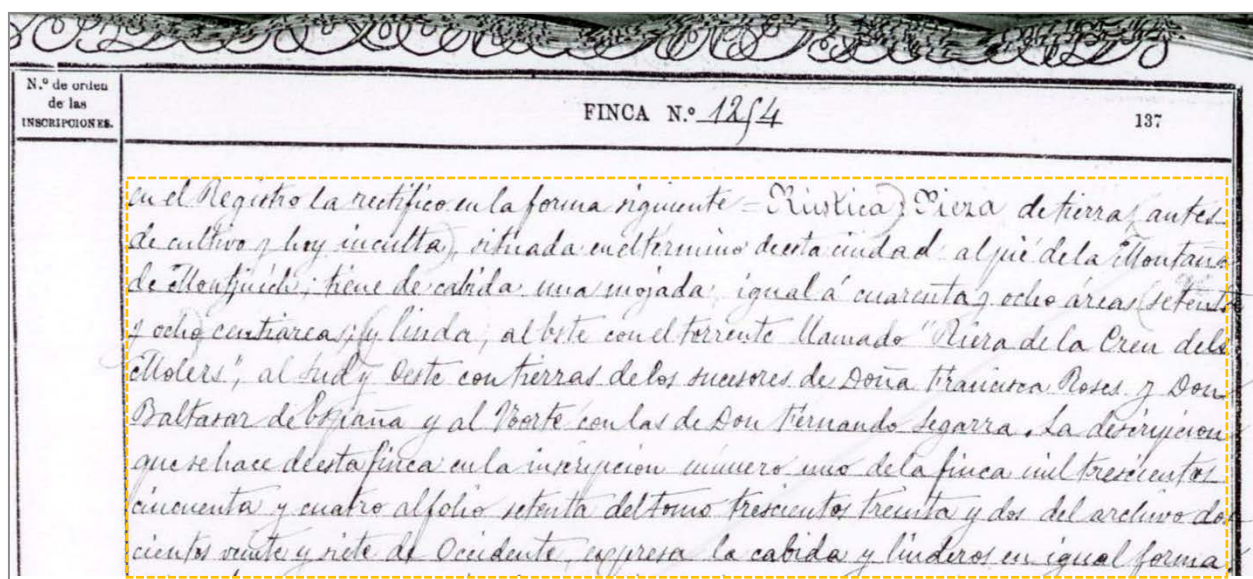 N.º de orden
de las
INSCRIPCIONES.
FINCA N.º 1254
137
en el Registro la rectifico en la forma siguiente = Rústica) Pieza de tierra, antes
de cultivo y hoy inculta), situada en el termino de esta ciudad al pié de la Montaña
de Montjuich; tiene de cabida una mojada igual á cuarenta y ocho áreas (setenta
y ocho centiareas; (y linda, al Este con el torrente llamado "Riera de la Creu dels
Molers", al Sud y Oeste con tierras de los sucesores de Doña Francisca Roses y Don
Baltasar de España y al Norte con las de Don Fernando Segarra. La descripcion
que se hace de esta finca en la inscripcion número uno de la finca mil trescientos
cincuenta y cuatro al folio setenta del tomo trescientos treinta y dos del archivo dos
cientos veinte y siete de Occidente, expresa la cabida y linderos en igual forma,